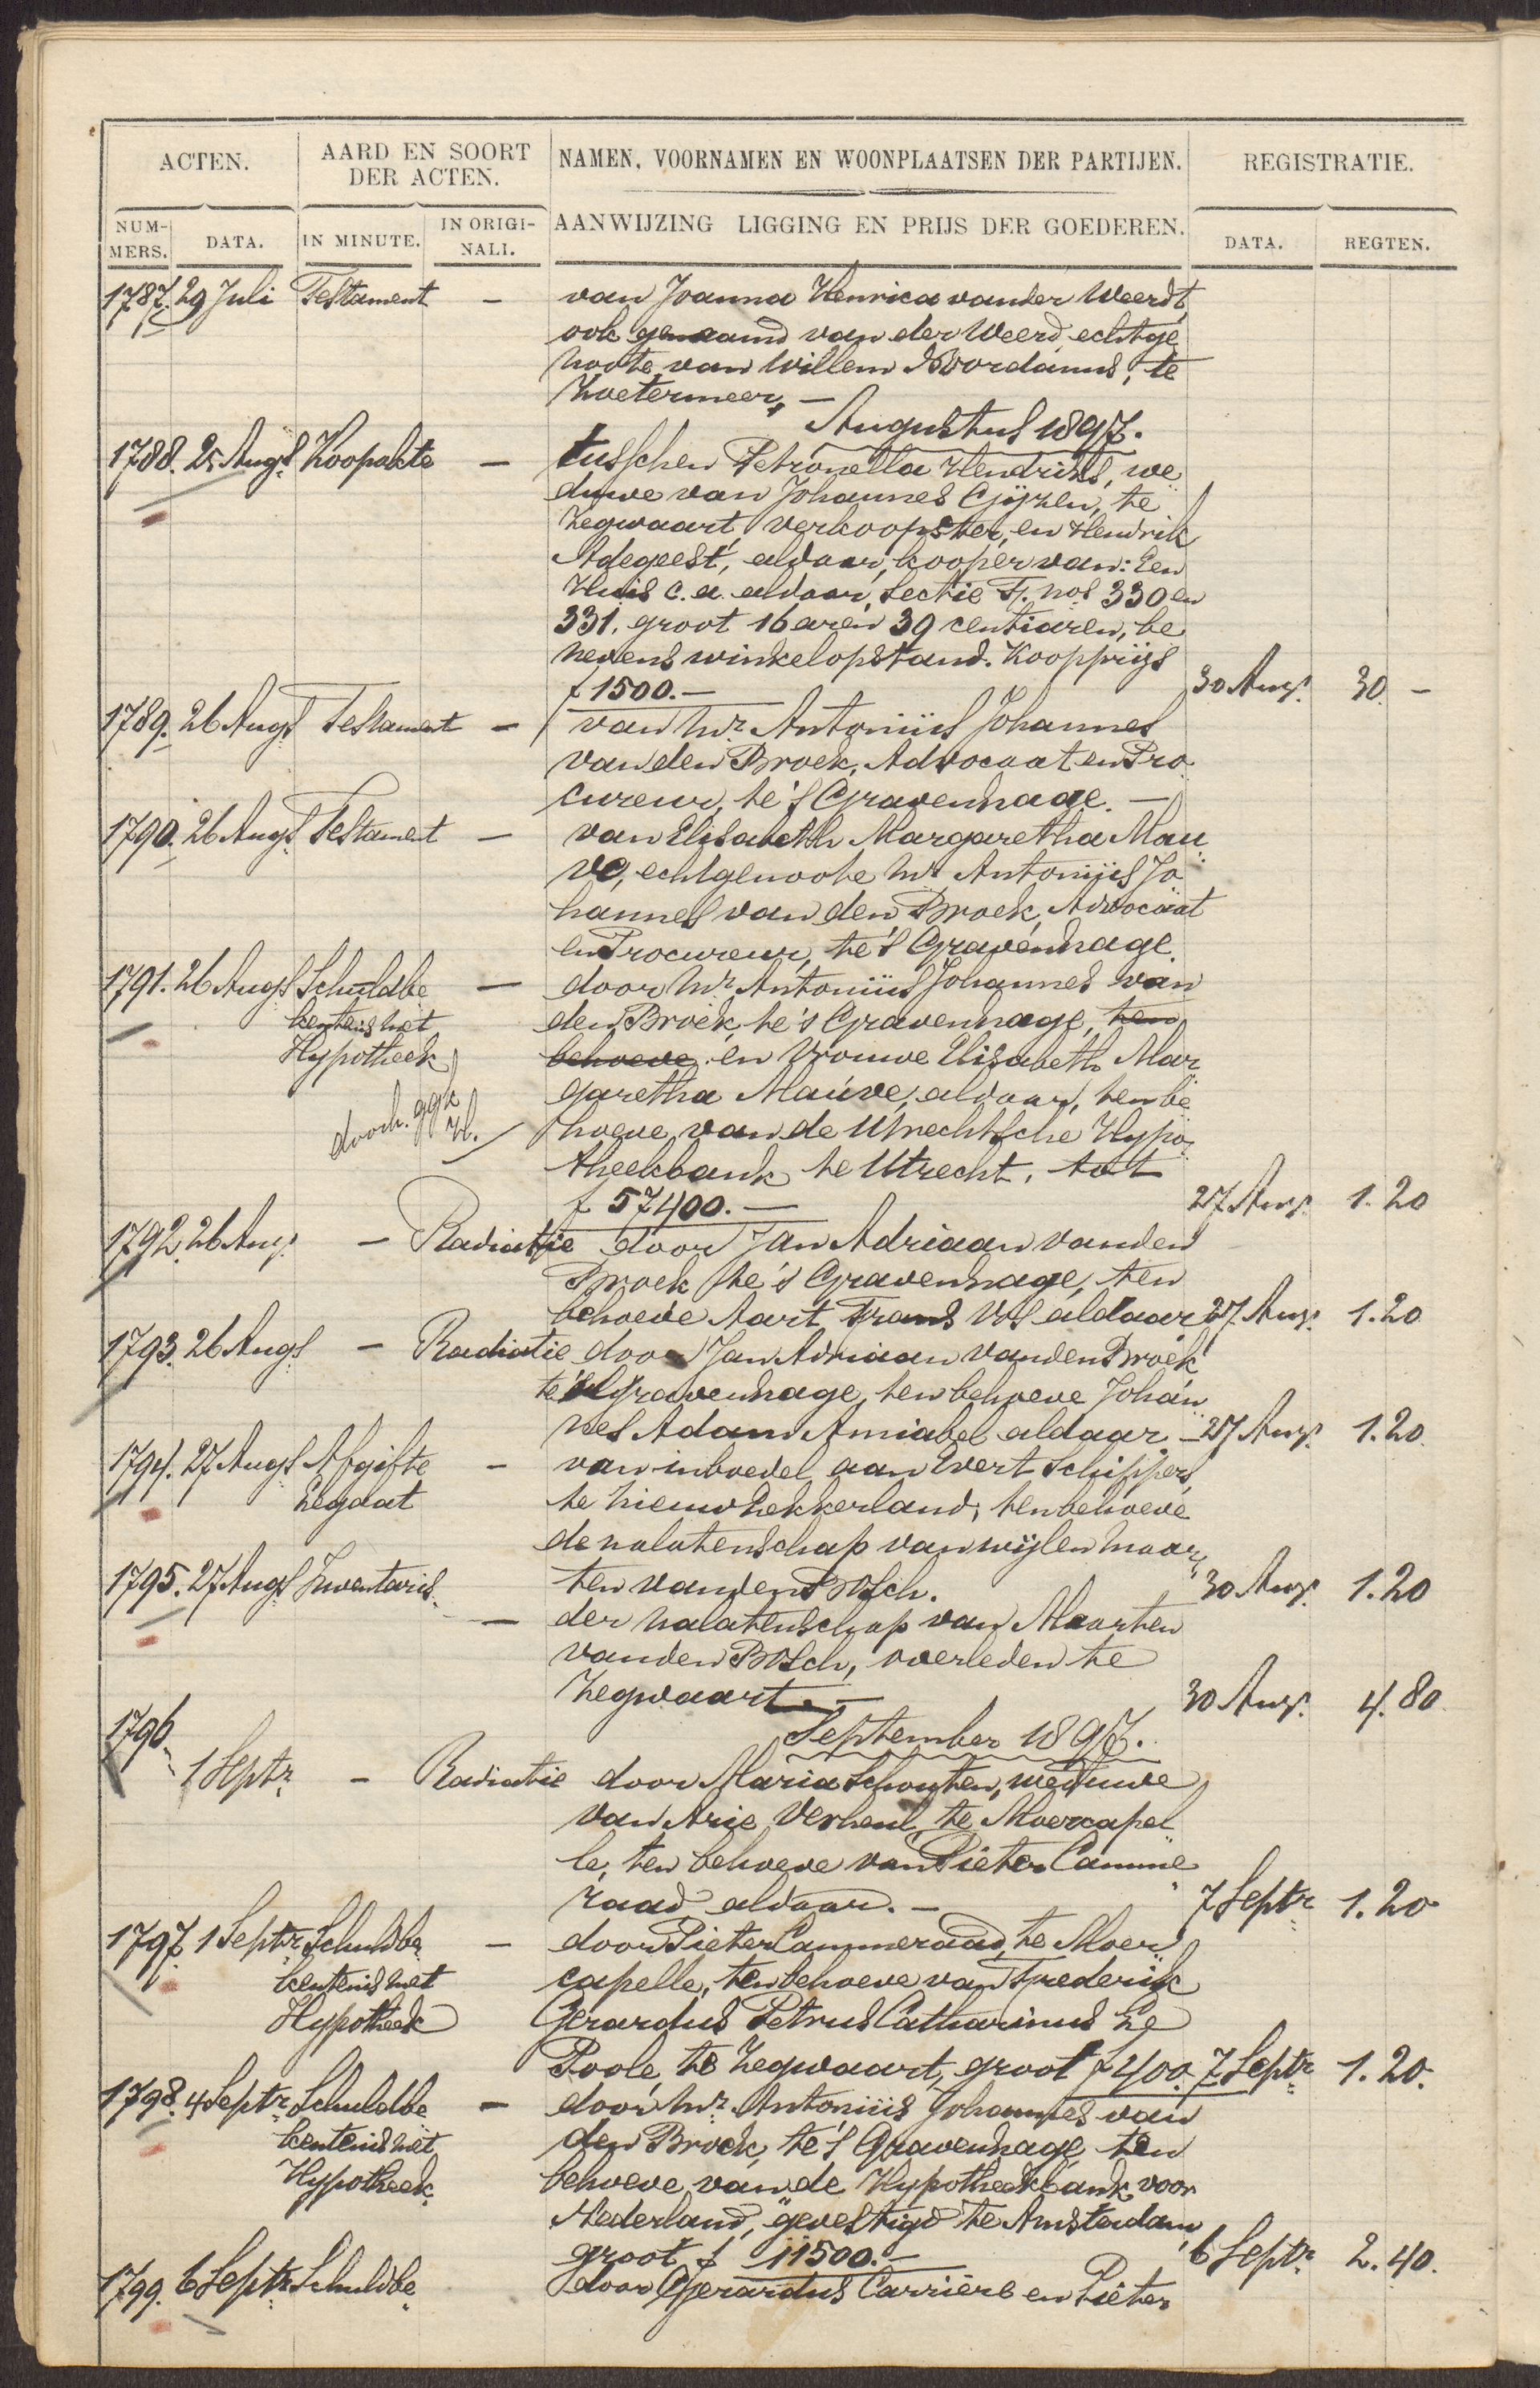 ACTEN. AARD EN SOORT DER ACTEN. NAMEN, VOORNAMEN EN WOONPLAATSEN DER PARTIJEN. REGISTRATIE.
NUM-MERS. DATA. IN MINUTE. IN ORIGI-NALI. AANWIJZING LIGGING EN PRIJS DER GOEDEREN. DATA. REGTEN.
1787. 29 Juli Testament — van Joanna Henrica van der Weerdt,
ook genaamd van der Weerd, echtge
noote van Willem Bordanus, te
Zoetermeer. —
Augustus 1897.
1788. 25 Augs Koopakte — tusschen Petronella Hendriks, we
duwe van Johannes Gijzen, te
Zegwaart, verkoopster, en Hendrik
Adegeest, aldaar, kooper van: Een
Huis c.a. aldaar, Sectie F. nos 330 en
331, groot 16 aren 39 centiaren, be
nevens winkelopstand. Koopprijs
f 1500.— 30 Aug. 30 —
1789. 26 Augs Testament — van Mr. Antonius Johannes
van den Broek, Advocaat en Pro
cureur, te 's Gravenhage. —
1790. 26 Augs Testament — van Elisabeth Margaretha Mau
ve, echtgenoote Mr Antonius Jo
hannes van den Broek, Advocaat
en Procureur, te 's Gravenhage.
1791. 26 Augs Schuldbe — door Mr. Antonius Johannes van
kentenis met den Broek, te 's Gravenhage, ten
Hypotheek behoeve en Vrouwe Elisabeth Mar
garetha Mauve, aldaar, ten be
dooh. ggk H. hoeve van de Utrechtsche Hypo
theekbank te Utrecht, tot
f 57400.— 27 Aug. 1.20
1792. 26 Aug. — Radiatie door Jan Adriaan van den
Broek te 's Gravenhage, ten
behoeve Aart Frans Vos aldaar 27 Aug. 1.20
1793. 26 Augs — Radiatie door Jan Adriaan van den Broek
te 's Gravenhage, ten behoeve Johan
nes Adam Amiabel aldaar — 27 Aug. 1.20.
1794. 27 Augs Afgifte — van inboedel aan Evert Schippers,
Legaat te Nieuw Lekkerland, ten behoeve
de nalatenschap van wijlen Maar
ten van den Bosch. 30 Aug. 1.20
1795. 27 Augs Inventaris. — der nalatenschap van Maarten
van den Bosch, overleden te
Zegwaart. — 30 Aug. 4.80
September 1897.
1796 1 Septr. — Radiatie door Maria Schouten, weduwe
van Arie Verheul, te Moercapel
le, ten behoeve van Pieter Camme
raad aldaar. — 7 Septr 1.20
1797. 1 Septr. Schuldbe — door Pieter Cammeraad, te Moer
kentenis met capelle, ten behoeve van Frederik
Hypotheek Gerardus Petrus Catharinus Le
Poole, te Zegwaart, groot f 400. 7 Septr 1.20.
1798. 4 Septr. Schuldbe — door Mr. Antonius Johannes van
kentenis met den Broek, te 's Gravenhage, ten
Hypotheek. behoeve van de Hypotheekbank voor
Nederland, gevestigd te Amsterdam,
groot f 11500.— 6 Septr 2.40.
1799. 6 Septr. Schuldbe door Gerardus Carrière en Pieter